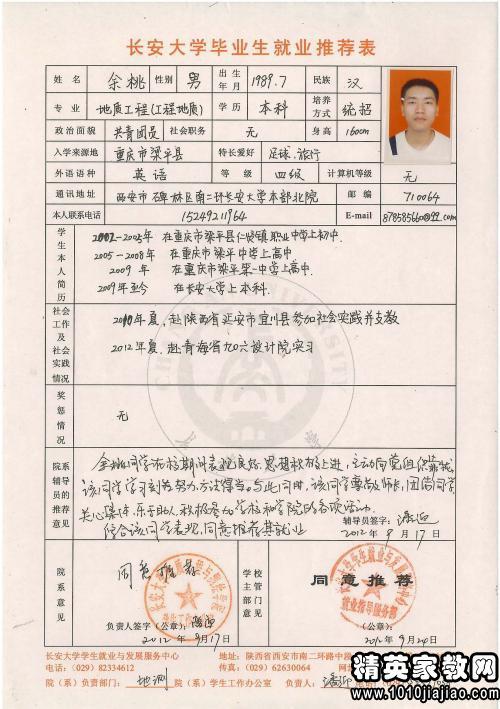 长安大学毕业生就业推荐表
姓名 余桃 性别 男 出生年月 1989.7 民族 汉
专业 地质工程(工程地质) 学历 本科 培养方式 统招
政治面貌 共青团员 社会职务 无 身高 160cm
入学来源地 重庆市梁平县 特长爱好 足球、旅行
外语语种 英语 等级 四级 计算机等级 无
通讯地址 西安市碑林区南二环长安大学本部北院 邮编 710064
本人联系电话 15249211964 E-mail 878585660@qq.com
学生本人简历
2002-2005年 在重庆市梁平县仁贤镇职业中学上初中.
2005-2008年 在重庆市梁平中学上高中
2009年 在重庆市梁平第一中学上高中.
2009年至今 在长安大学上本科.
社会工作及社会实践情况
2010年夏,赴陕西省延安市宜川县参加社会实践并支教
2012年夏,赴青海省九0六设计院实习
奖惩情况
无
院系辅导员的推荐意见
余桃同学在校期间表现良好,思想积极上进,主动向党组织靠拢
该同学学习刻苦努力,方法得当,与此同时,该同学尊敬师长,团结同学
关心集体,乐于助人,积极参加学校和学院的各项活动.
综合该同学表现,同意推荐其就业
辅导员签字:
2012年9月17日
院系意见
同意推荐
负责人签字(公章):
2012年9月17日
学校主管部门意见
同意推荐
就业指导服务部
(公章):
年9月20日
长安大学学生就业与发展服务中心 地址:陕西省西安市南二环路中段
电话:(029)82334612 传真:(029)62630064
院(系)负责部门: 地测 院(系)学生工作办公室
精英家教网
www.1010jiajiao.com